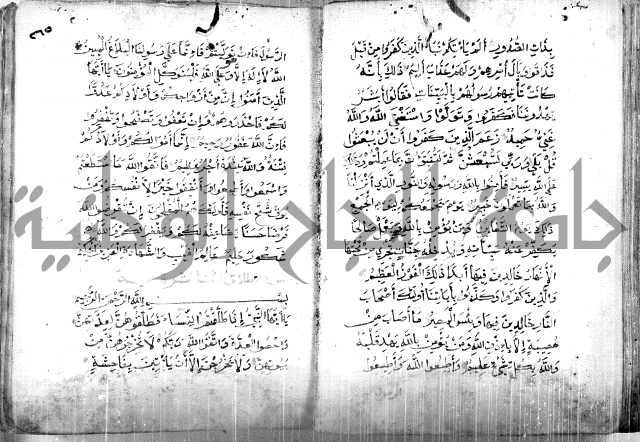 بذات الصدور ألم يأتكم نبأ الذين كفروا من قبل
فذاقوا وبال أمرهم ولهم عذاب أليم ذلك بأنه
كانت تأتيهم رسلهم بالبينات فقالوا أبشر
يهدوننا فكفروا وتولوا واستغنى الله والله
غني حميد زعم الذين كفروا أن لن يبعثوا
قل بلى وربي لتبعثن ثم لتنبؤن بما عملتم وذلك
على الله يسير فآمنوا بالله ورسوله والنور الذي أنزلنا
والله بما تعملون خبير يوم يجمعكم ليوم الجمع
ذلك يوم التغابن ومن يؤمن بالله ويعمل صالحا
يكفر عنه سيئاته ويدخله جنات تجري من تحتها
الأنهار خالدين فيها أبدا ذلك الفوز العظيم
والذين كفروا وكذبوا بآياتنا أولئك أصحاب
النار خالدين فيها وبئس المصير ما أصاب من
مصيبة إلا بإذن الله ومن يؤمن بالله يهد قلبه
والله بكل شيء عليم وأطيعوا الله وأطيعوا
الرسول
الرسول فإن توليتم فإنما على رسولنا البلاغ المبين
الله لا إله إلا هو وعلى الله فليتوكل المؤمنون يا أيها
الذين آمنوا إن من أزواجكم وأولادكم عدوا
لكم فاحذروهم وإن تعفوا وتصفحوا وتغفروا
فإن الله غفور رحيم إنما أموالكم وأولادكم
فتنة والله عنده أجر عظيم فاتقوا الله ما استطعتم
واسمعوا وأطيعوا وأنفقوا خيرا لأنفسكم ومن
يوق شح نفسه فأولئك هم المفلحون إن تقرضوا الله
قرضا حسنا يضاعفه لكم ويغفر لكم والله
شكور حليم عالم الغيب والشهادة العزيز الحكيم
بسم الله الرحمن الرحيم
يا أيها النبي إذا طلقتم النساء فطلقوهن لعدتهن
وأحصوا العدة واتقوا الله ربكم لا تخرجوهن من
بيوتهن ولا يخرجن إلا أن يأتين بفاحشة
جامعة النجاح الوطنية